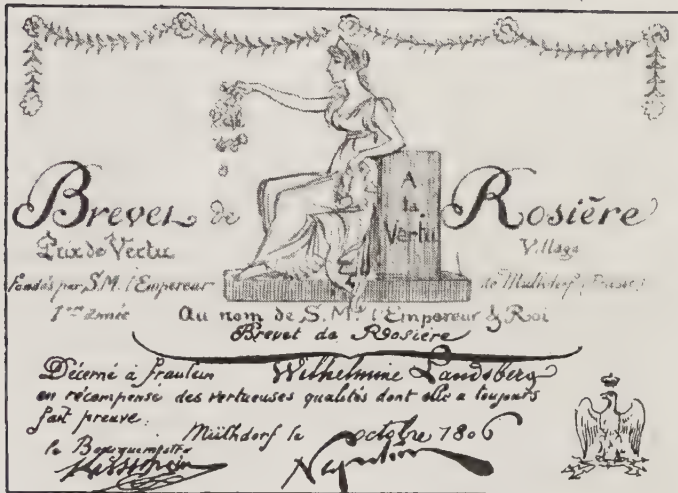 Brevet de Rosière
Prix de Vertu
fondés par S.M. l'Empereur
1ère année
A
la
Vertu
Village
de Mulhdorf
Au nom de S. M. l'Empereur & Roi
Brevet de Rosière
Décerné à fraulein Wilhelmine Landsberg
en récompense des vertueuses qualités dont elle a toujours
fait preuve.
Mülhdorf le octobre 1806
le Bourguemestre
Napoléon